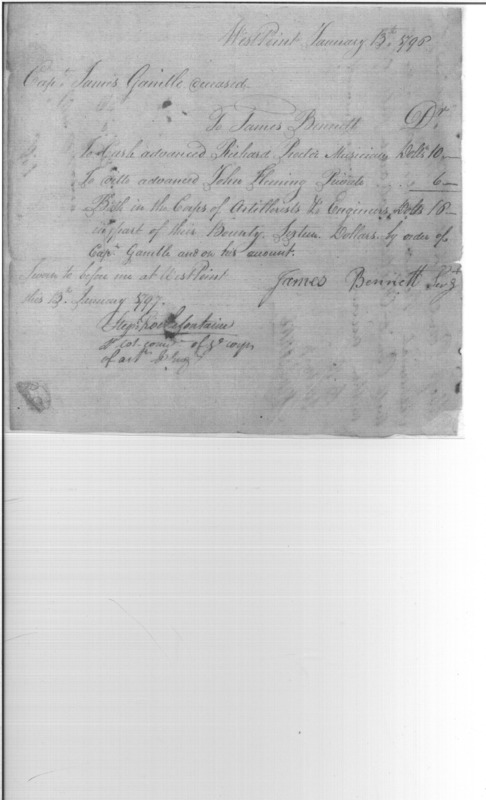 West Point January 13th 1798
Capt. James Gamble deceased.
To James Bennett Dr.
To Cash advanced Richard Rector Musician Dolls 10.—
To ditto advanced John Fleming Private . . 6—
Both in the Corps of Artillerists & Engineers, Dolls 16—
in part of their Bounty. Sixteen Dollars by order of
Capt. Gamble and on his account.
Sworn to before me at West Point James Bennett Sergt
this 13th January 1797.
Steps Rochefontaine
Lt Col. comt of ye corps
of art. & Eng